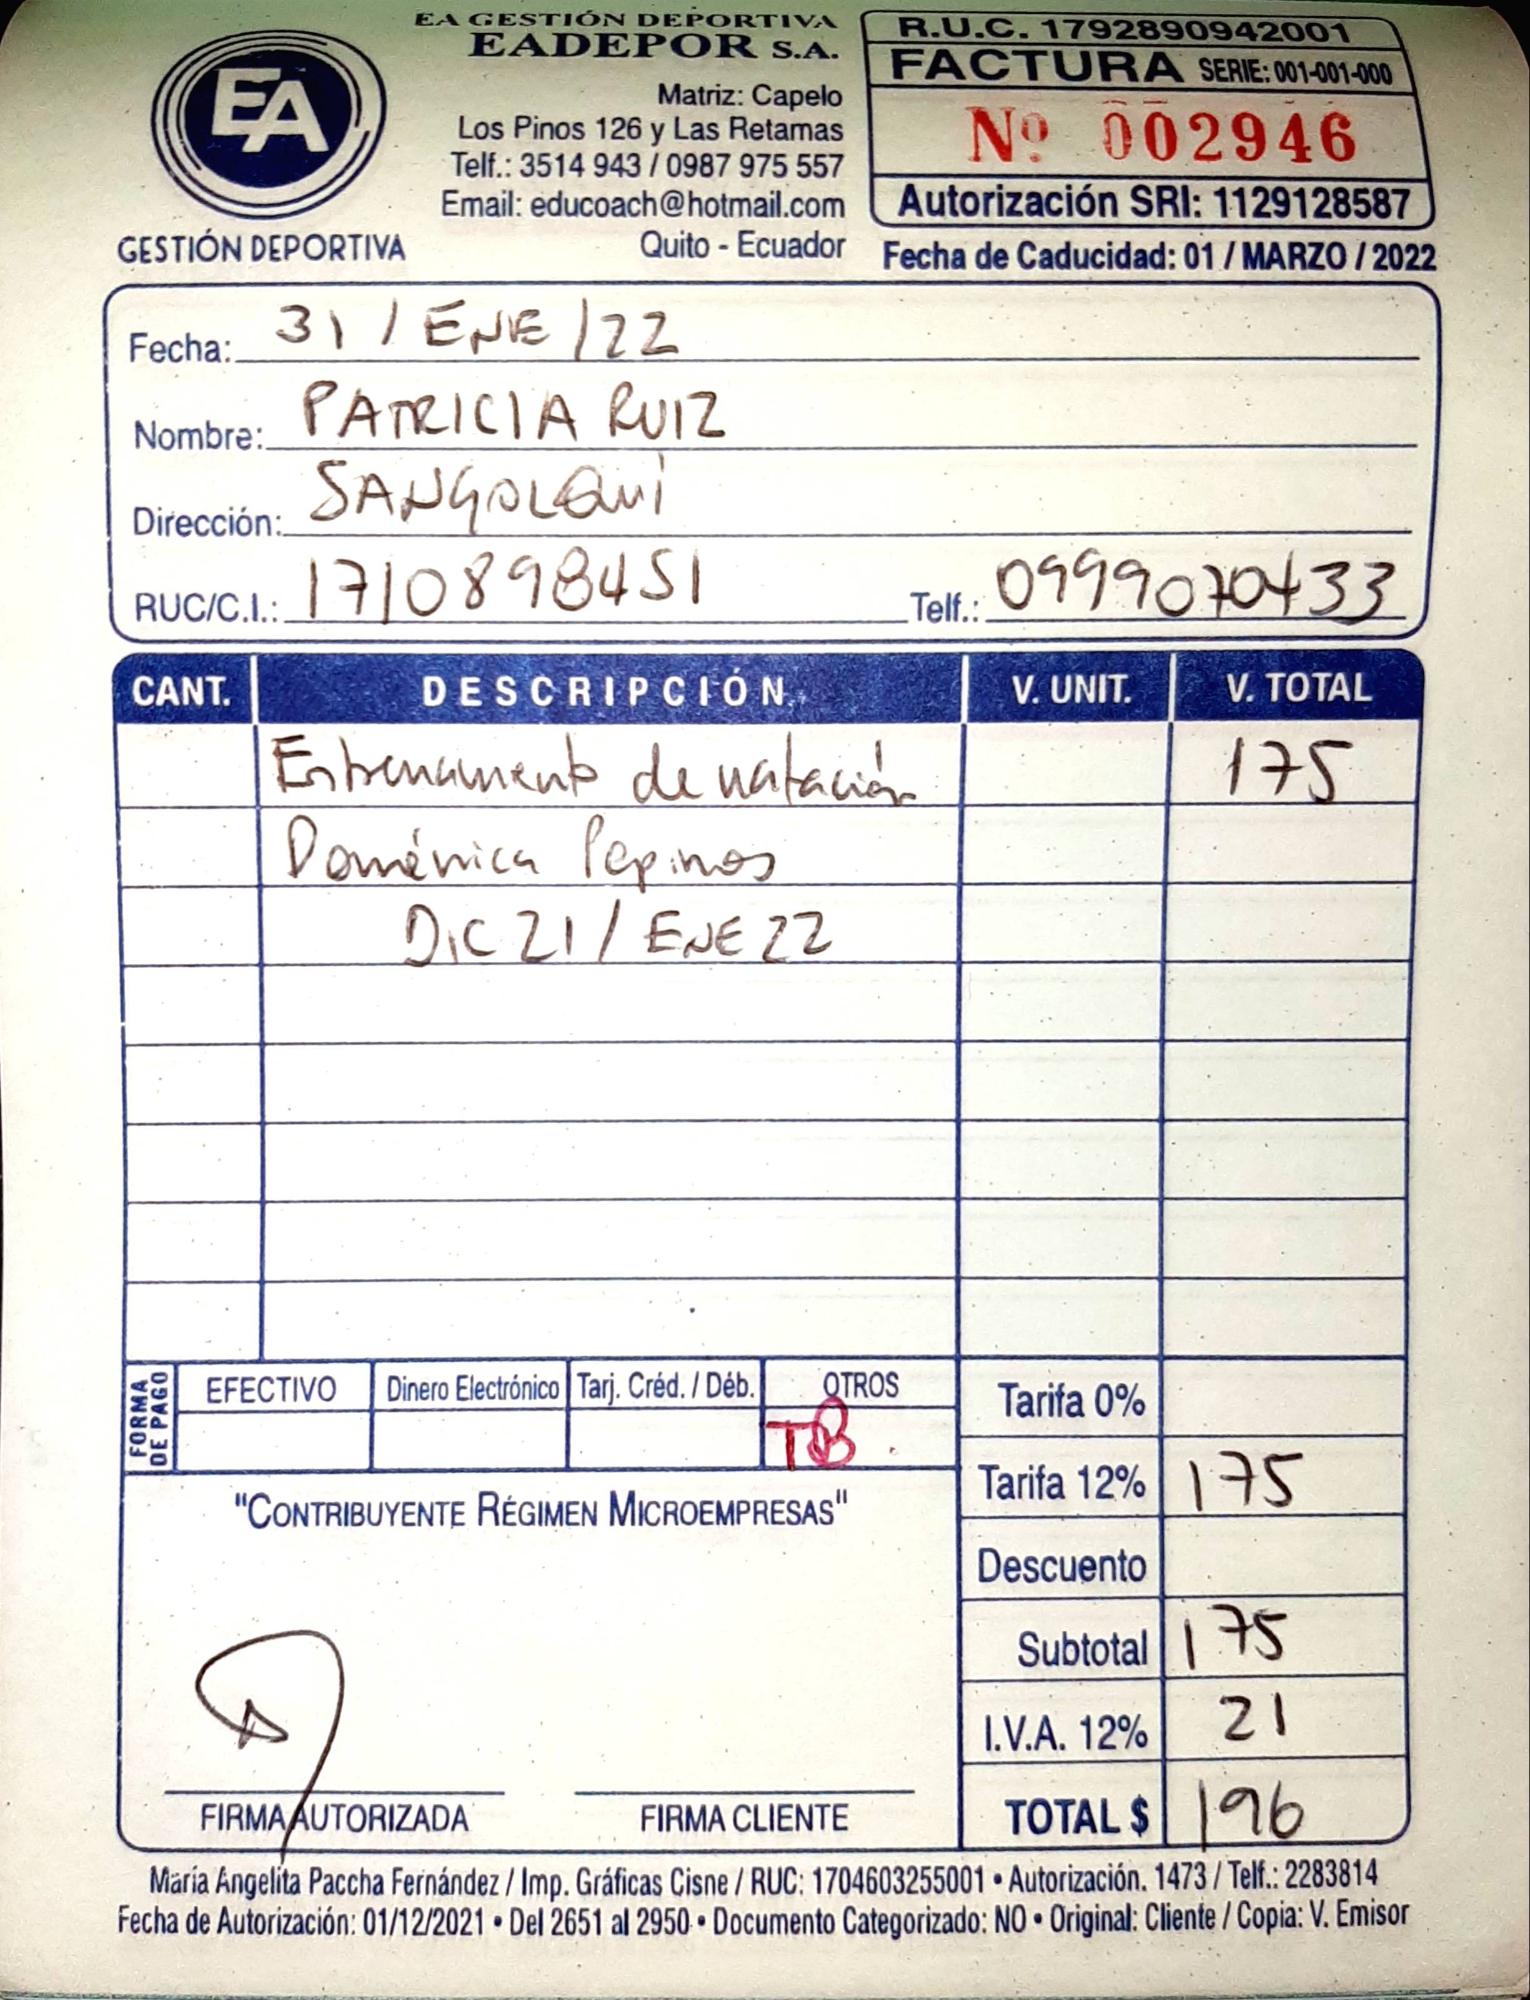 EA GESTIÓN DEPORTIVA
EADEPOR S.A.
EA
GESTIÓN DEPORTIVA
Matriz: Capelo
Los Pinos 126 y Las Retamas
Telf.: 3514 943 / 0987 975 557
Email: educoach@hotmail.com
Quito - Ecuador
R.U.C. 1792890942001
FACTURA SERIE: 001-001-000
Nº 002946
Autorización SRI: 1129128587
Fecha de Caducidad: 01 / MARZO / 2022
Fecha: 31 / ENE / 22
Nombre: PATRICIA RUIZ
Dirección: SANGOLQUÍ
RUC/C.I.: 1710898451 Telf.: 0999070433
CANT. DESCRIPCIÓN V. UNIT. V. TOTAL
Entrenamiento de natación 175
Doménica Pepinos
DIC 21 / ENE 22
FORMA DE PAGO
EFECTIVO Dinero Electrónico Tarj. Créd. / Déb. OTROS
TB
Tarifa 0%
Tarifa 12% 175
Descuento
Subtotal 175
I.V.A. 12% 21
TOTAL $ 196
"CONTRIBUYENTE RÉGIMEN MICROEMPRESAS"
FIRMA AUTORIZADA FIRMA CLIENTE
María Angelita Paccha Fernández / Imp. Gráficas Cisne / RUC: 1704603255001 • Autorización. 1473 / Telf.: 2283814
Fecha de Autorización: 01/12/2021 • Del 2651 al 2950 • Documento Categorizado: NO • Original: Cliente / Copia: V. Emisor